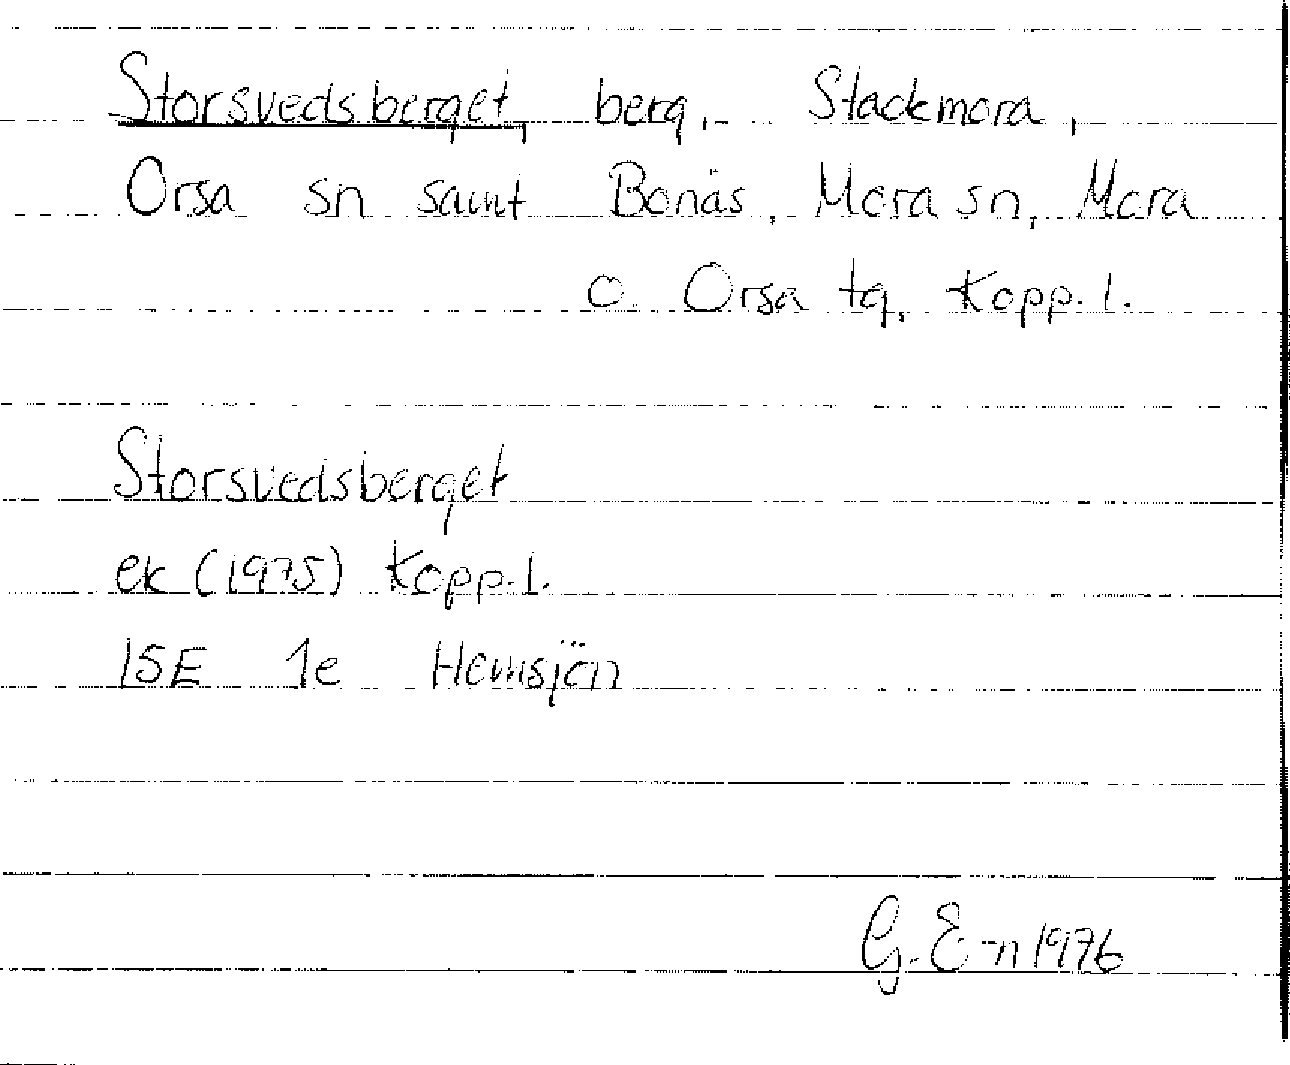 Storsvedsberget, berg, Stackmora,
Orsa sn samt Bonäs, Mora sn, Mora
o. Orsa tg, Kopp. l.
Storsvedsberget
ek (1975) Kopp. l.
15E 1e Hemsjön
G. E-n 1976